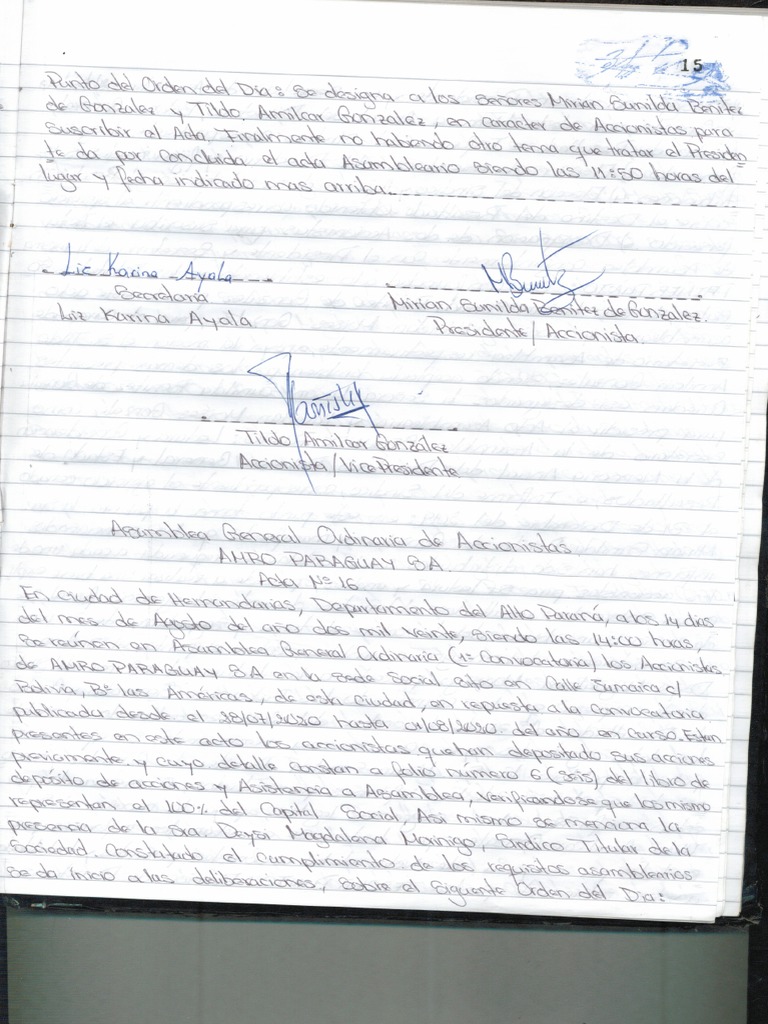 15
Punto del Orden del Día: Se designa a los Señores Mirian Sunilda Benitez
de Gonzalez y Tildo Amilcar Gonzalez, en carácter de Accionistas para
suscribir al Acta. Finalmente no habiendo otro tema que tratar el Presiden
te da por concluida el acta Asambleario siendo las 11:50 horas del
lugar y fecha indicado mas arriba.
Liz Karina Ayala
Secretaria
Liz Karina Ayala
MBenitz
Mirian Sunilda Benitez de Gonzalez.
Presidente/Accionista.
Tildo Amilcar González
Accionista/VicePresidente
Asamblea General Ordinaria de Accionistas
AMRO PARAGUAY SA.
Acta Nº 16
En ciudad de Hernandarias, Departamento del Alto Paraná, a los 14 dias
del mes de Agosto del año dos mil veinte, siendo las 14:00 horas,
Se reunen en Asamblea General Ordinaria (1ª Convocatoria) los Accionistas
de AMRO PARAGUAY SA en la Sede Social sito en Calle Jamaica c/
Bolivia, Bº las Américas, de esta ciudad, en repuesta a la Convocatoria
publicada desde el 28/07/2020 hasta 01/08/2020 del año en curso. Estan
presentes en este acto los accionistas que han depositado sus acciones
previamente y cuyo detalle constan a folio número 6 (seis) del libro de
depósito de acciones y Asistencia a Asamblea, verificandose que los mismo
representan el 100% del Capital Social, Asi mismo se menciona la
presencia de la Sra Deysi Magdalena Morinigo, Sindico Titular de la
Sociedad. Constatado el cumplimiento de los requisitos asamblearios
se da inicio a las deliberaciones, sobre el siguente Orden del Dia: